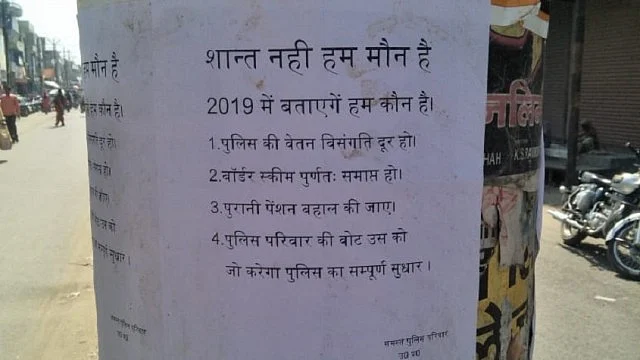 शान्त नही हम मौन है
2019 में बताएगें हम कौन है।
1.पुलिस की वेतन विसंगति दूर हो।
2.बॉर्डर स्कीम पुर्णतः समाप्त हो।
3.पुरानी पेंशन बहाल की जाए।
4.पुलिस परिवार की वोट उस को
जो करेगा पुलिस का सम्पूर्ण सुधार।
समस्त पुलिस परिवार
उ0 प्र0
म मौन है
हम कौन है।
दूर हो।
उस को
सुधार।
HAH